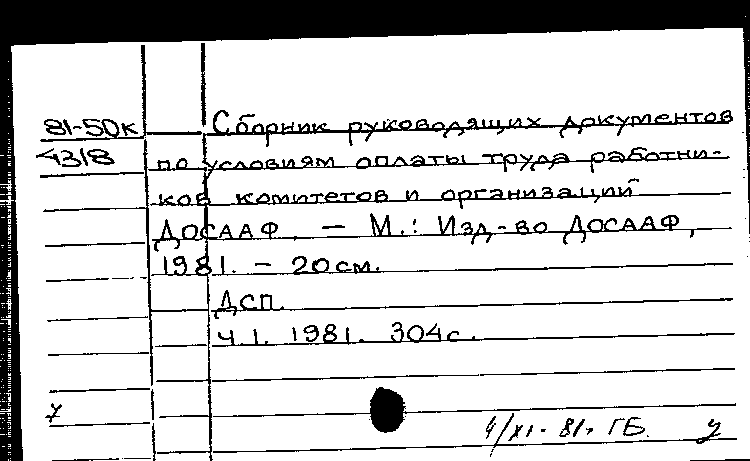 81-50к Сборник руководящих документов
4318 по условиям оплаты труда работни-
ков комитетов и организаций
ДОСААФ. — М.: Изд-во ДОСААФ,
1981. — 20 см.
ДСП.
Ч.1. 1981. 304 с.
4/XI-81г ГБ.